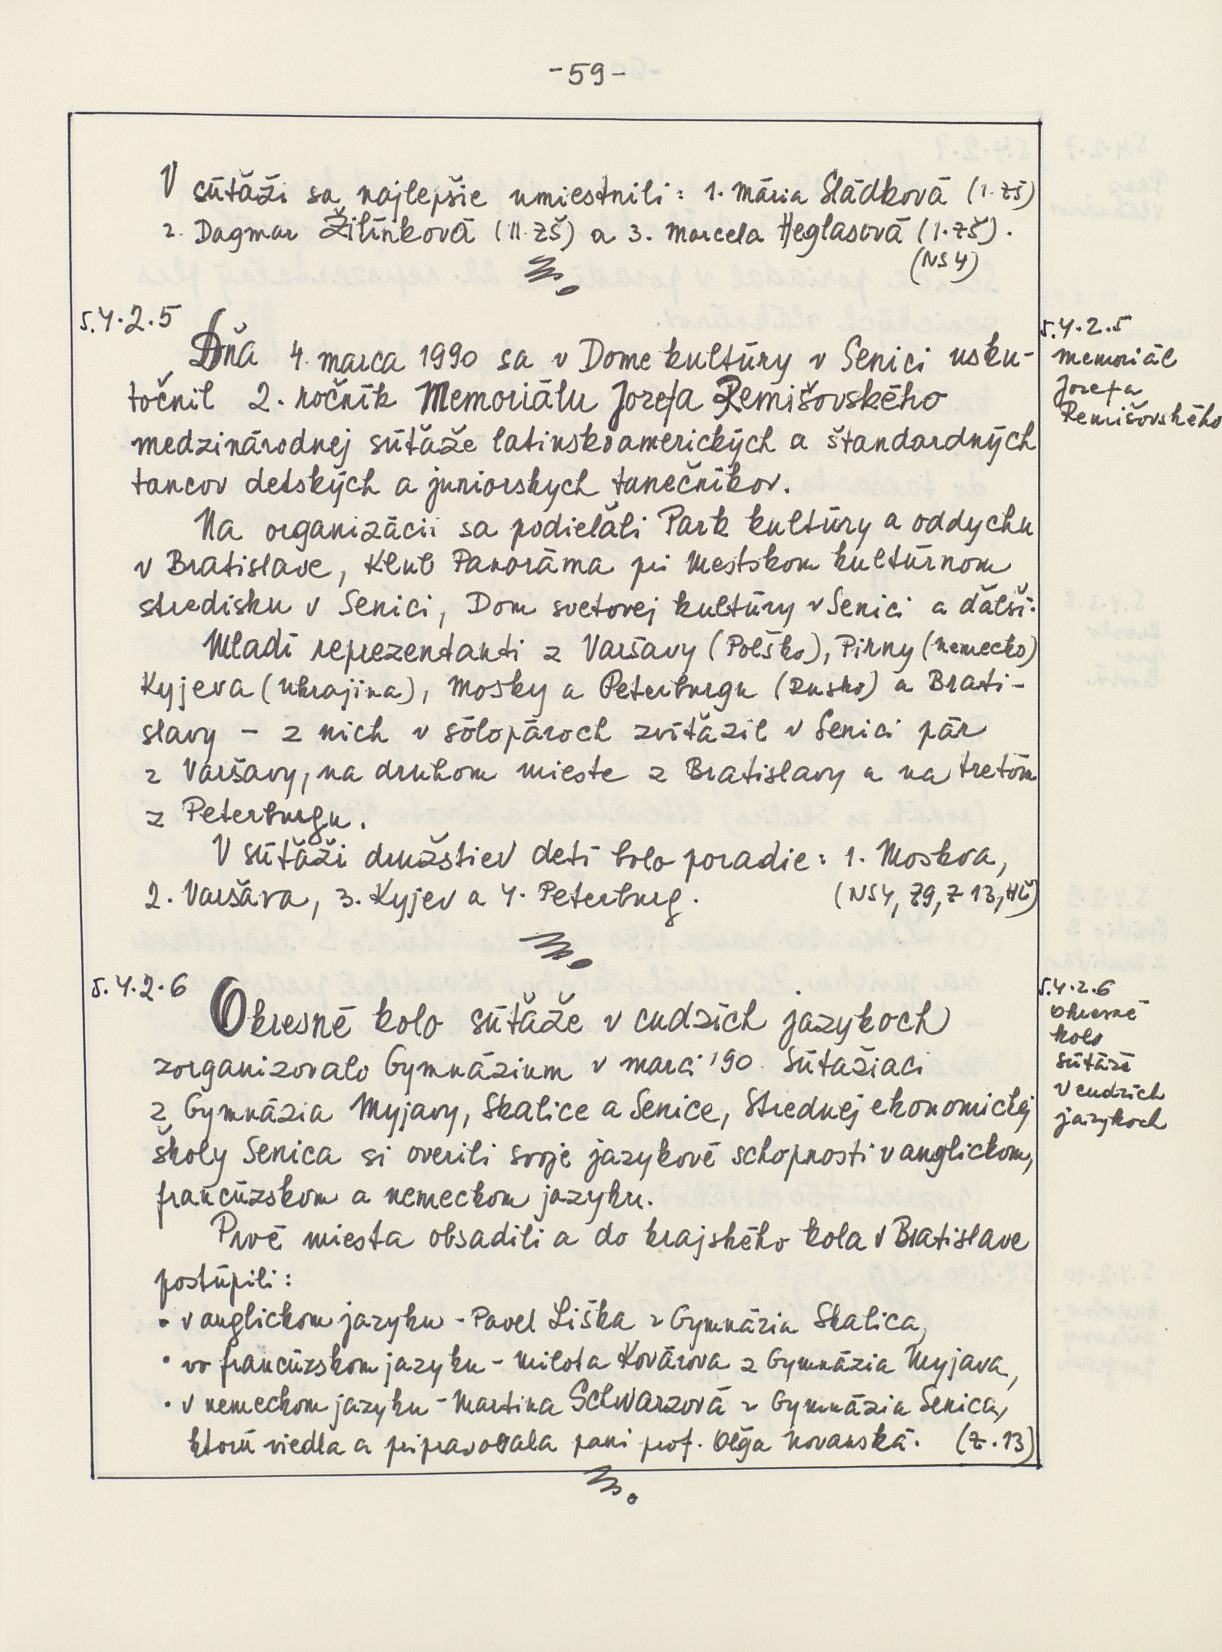 -59-
V súťaži sa najlepšie umiestnili: 1. Mária Sládková (I. ZŠ)
2. Dagmar Žilínková (II. ZŠ) a 3. Marcela Heglasová (I. ZŠ).
(NS 4)
5.4.2.5
Dňa 4. marca 1990 sa v Dome kultúry v Senici usku-
točnil 2. ročník Memoriálu Jozefa Remišovského
medzinárodnej súťaže latinskoamerických a štandardných
tancov detských a juniorskych tanečníkov.
Na organizácii sa podieľali Park kultúry a oddychu
v Bratislave, Klub Panoráma pri Mestskom kultúrnom
stredisku v Senici, Dom svetovej kultúry v Senici a ďalší.
Mladí reprezentanti z Varšavy (Poľsko), Pirny (Nemecko)
Kyjeva (Ukrajina), Mosky a Peterburgu (Rusko) a Brati-
slavy - z nich v sólopároch zvíťazil v Senici pár
z Varšavy, na druhom mieste z Bratislavy a na treťom
z Peterburgu.
V súťaži družstiev detí bolo poradie: 1. Moskva,
2. Varšava, 3. Kyjev a 4. Peterburg. (NS4, Z9, Z 13, HČ)
5.4.2.5
Memoriál
Jozefa
Remišovského
5.4.2.6
Okresné kolo súťaže v cudzích jazykoch
zorganizovalo Gymnázium v marci '90. Súťažiaci
z Gymnázia Myjavy, Skalice a Senice, Strednej ekonomickej
školy Senica si overili svoje jazykové schopnosti v anglickom,
francúzskom a nemeckom jazyku.
Prvé miesta obsadili a do krajského kola v Bratislave
postúpili:
• v anglickom jazyku - Pavel Liška z Gymnázia Skalica,
• vo francúzskom jazyku - Milota Kovárova z Gymnázia Myjava,
• v nemeckom jazyku - Martina Schwarzová z Gymnázia Senica,
ktorú viedla a pripravovala pani prof. Oľga Novanská. (Z.13)
5.4.2.6
Okresné
kolo
súťaže
v cudzích
jazykoch